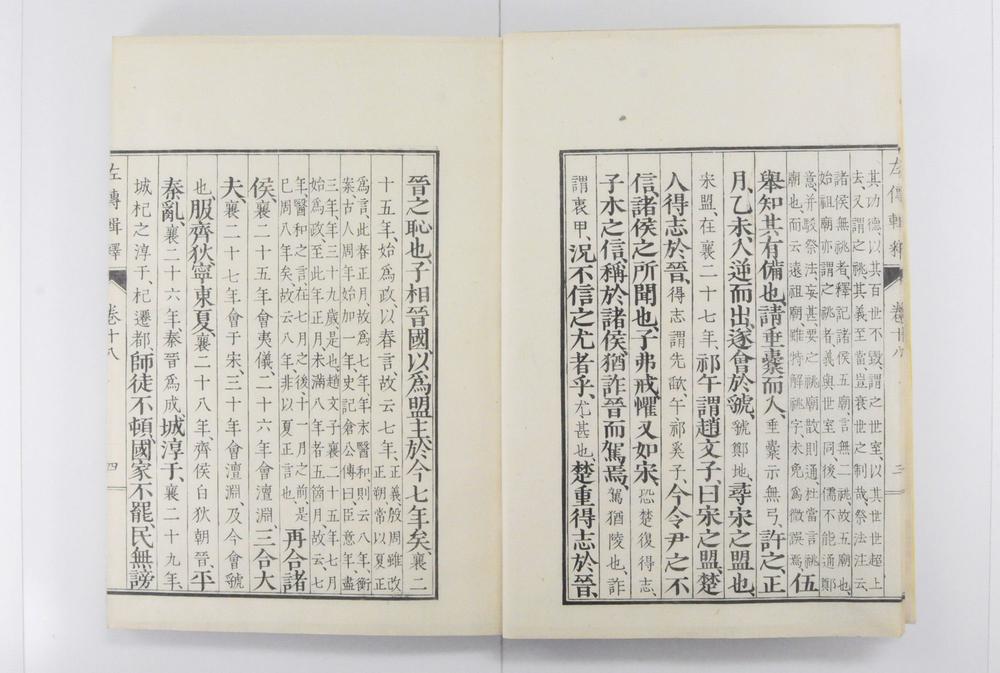 左傳輯釋 卷十八 三
其功德、以其百世不毀、謂之世室、以其世世超上
去、又謂之祧、其義至當、豈衰世之制哉、祭法注云、
諸侯無祧者、釋記諸侯五廟、言無二祧、故五廟也、
始祖廟亦謂之祧者、義與世室同、後儒不能通鄭
意、并駁祭法妄甚、要之祧廟散則通、杜當言祧
廟也、而云遠祖廟、雖特解祧字、未免爲微誤焉、伍
舉知其有備也、請垂櫜而入、垂櫜示無弓、許之、正
月、乙未、入逆而出、遂會於虢、虢鄭地、尋宋之盟也、
宋盟、在襄二十七年、祁午謂趙文子、曰宋之盟、楚
人得志於晉、得志謂先歃、午祁奚子、今令尹之不
信、諸侯之所聞也、子弗戒、懼又如宋、恐楚復得志、
子木之信稱於諸侯、猶詐晉而駕焉、駕猶陵也、詐
謂衷甲、況不信之尤者乎、尤甚也、楚重得志於晉、
晉之恥也、子相晉國、以爲盟主、於今七年矣、襄二
十五年、始爲政、以春言、故云七年、正義殷周雖改
正朔常以夏正
爲言、此春正月、故爲七年、年末醫和、則云八年、衡
案、古人周年始加一年、史記倉公傳曰、臣意年盡
三年、年三十九歲是也、趙文子襄二十五年七月
始爲政、至此年正月、未滿八年者五箇月、故云七
年、醫和之言、在七月之後、十一月之前、是
已周八年矣、故云八年、非以夏正言也、再合諸
侯、襄二十五年會夷儀、二十六年會澶淵、三合大
夫、襄二十七年會于宋、三十年會澶淵、及今會虢
也、服齊狄、寧東夏、襄二十八年、齊侯白狄朝晉、平
秦亂、襄二十六年、秦晉爲成、城淳于、襄二十九年、
城杞之淳于、杞遷都、師徒不頓、國家不罷、民無謗
左傳輯釋 卷十八 四